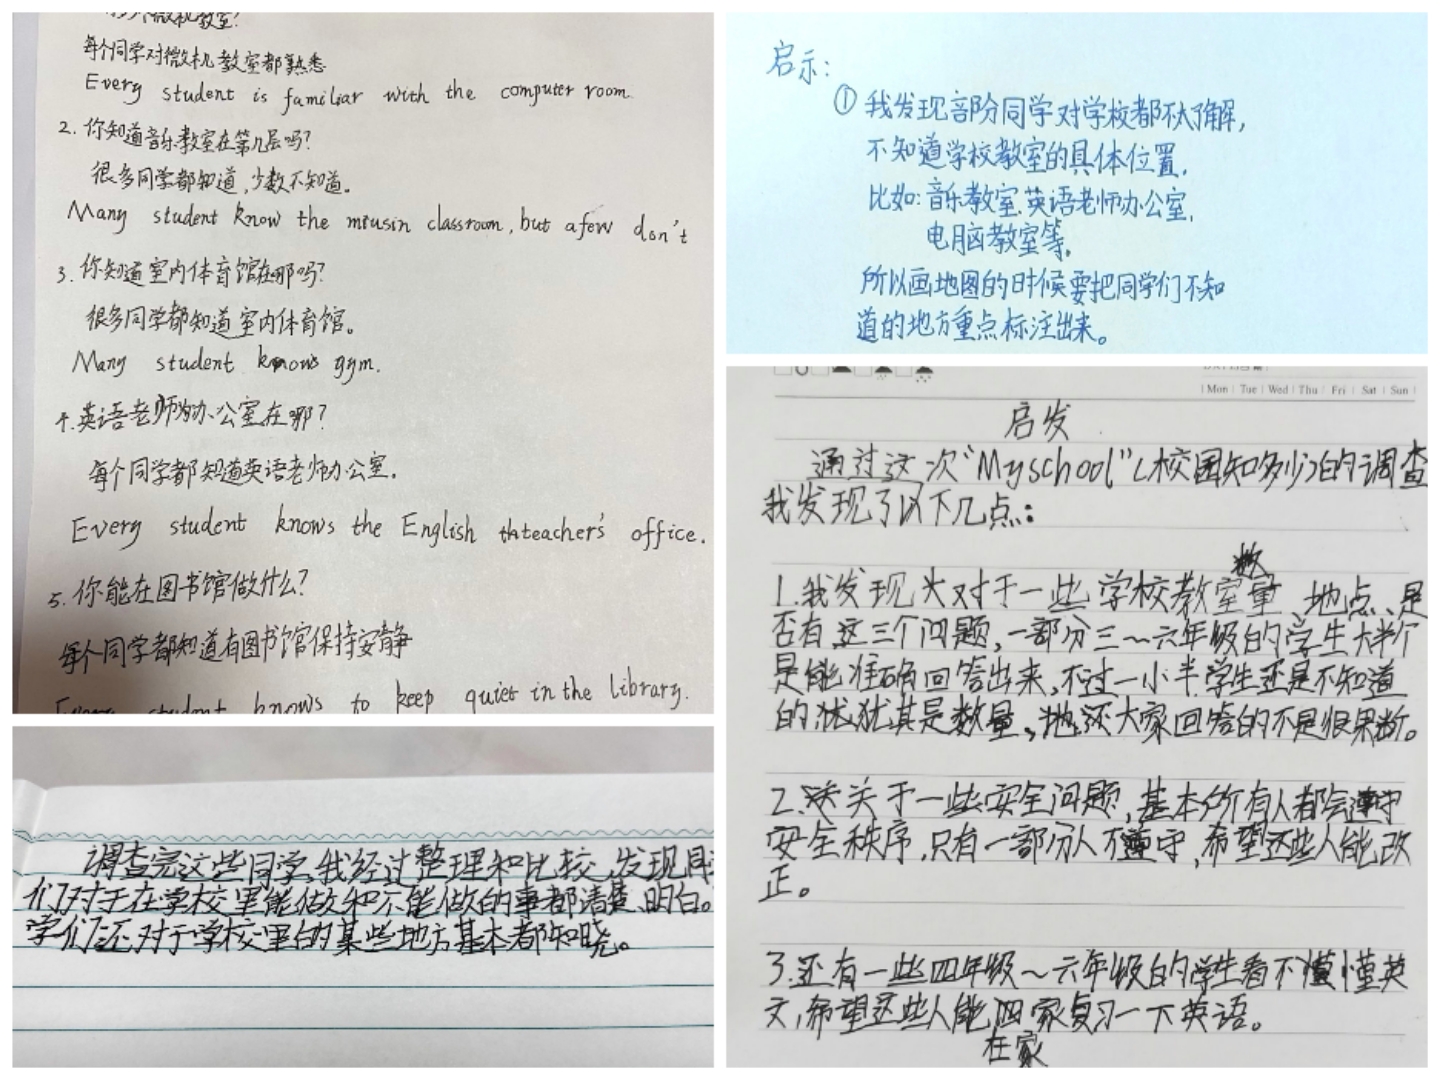 微机教室?
每个同学对微机教室都熟悉
Every student is familiar with the computer room.
2. 你知道音乐教室在第几层吗?
很多同学都知道,少数不知道。
Many student know the miusin classroom, but a few don't
3. 你知道室内体育馆在哪吗?
很多同学都知道室内体育馆。
Many student knows gym.
4. 英语老师的办公室在哪?
每个同学都知道英语老师办公室.
Every student knows the English thteacher's office.
5. 你能在图书馆做什么?
每个同学都知道有图书馆保持安静
Every student knows to keep quiet in the library.
启示:
① 我发现部阶同学对学校都不太了解,
不知道学校教室的具体位置.
比如:音乐教室.英语老师办公室,
电脑教室等.
所以画地图的时候要把同学们不知
道的地方重点标注出来。
调查完这些同学,我经过整理和比较,发现同
们对于在学校里能做和不能做的事都清楚、明白。
学们还对于学校里的某些地方基本都知晓。
Mon Tue Wed Thu Fri Sat Sun
启发
通过这次“My school”(校园知多少)的调查
我发现了以下几点:
数
1.我发现大对于一些学校教室量、地点、是
否有这三个问题,一部分三~六年级的学生大半个
是能准确回答出来,不过一小半学生还是不知道
的,尤其是数量,还大家回答的不是很果断。
2.关于一些安全问题,基本所有人都会遵守
安全秩序,只有一部分人不遵守,希望这些人能改
正。
3.还有一些四年级~六年级的学生看不懂英
文,希望这些人能回家复习一下英语。
在家